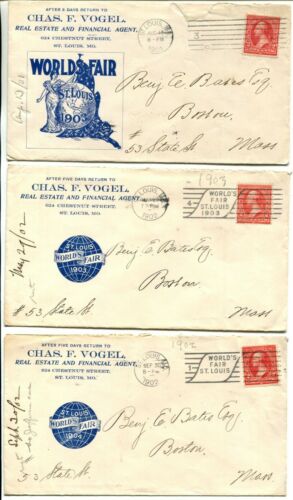 AFTER 5 DAYS RETURN TO
CHAS. F. VOGEL,
REAL ESTATE AND FINANCIAL AGENT,
624 CHESTNUT STREET,
ST. LOUIS, MO.
WORLD'S FAIR
ST. LOUIS
1903
3
Benj E. Bates Esq
Boston
#53 State St
Mass
AFTER FIVE DAYS RETURN TO
CHAS. F. VOGEL,
REAL ESTATE AND FINANCIAL AGENT,
624 CHESTNUT STREET,
ST. LOUIS, MO.
1903
1902
4
WORLD'S
FAIR
ST. LOUIS
1903
ST. LOUIS
WORLD'S FAIR
1903
May 29/02
Benj E. Bates Esq
Boston
#53 State St
Mass
AFTER FIVE DAYS RETURN TO
CHAS. F. VOGEL,
REAL ESTATE AND FINANCIAL AGENT,
624 CHESTNUT STREET,
ST. LOUIS, MO.
1902
SEP
1902
1
WORLD'S
FAIR
ST. LOUIS
1903
ST. LOUIS
WORLD'S FAIR
1904
Sept 20/02
Benj E Bates Esq
Boston
53 State St
Mass